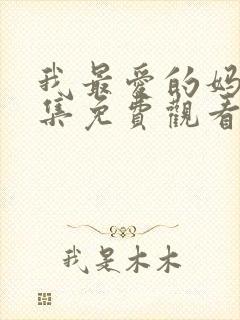 我最爱的妈
集免費觀看
我是木木